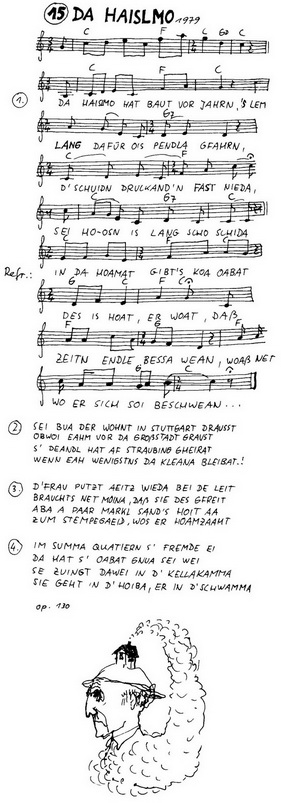 15 DA HAISLMO 1979
C F C G7 C
C F C
1. DA HAISLMO HAT BAUT VOR JAHRN, 'S LEM
G7
LANG DAFÜR OIS PENDLA GFAHRN,
C F
D'SCHUIDN DRUCKAND'N FAST NIEDA,
C G7 C
SEI HO-OSN IS LANG SCHO SCHIDA
C G C F
Refr.: IN DA HOAMAT GIBT'S KOA OABAT
G C F C
DES IS HOAT, ER WOAT, DAß
F G F
ZEITN ENDLE BESSA WEAN, WOAß NET
G C
WO ER SICH SOI BESCHWEAN...
2. SEI BUA DER WOHNT IN STUTTGART DRAUSST
OBWOI EAHM VOR DA GROßSTADT GRAUST
S' DEANDL HAT AF STRAUBING GHEIRAT
WENN EAH WENIGSTNS DA KLEANA BLEIBAT.!
3. D'FRAU PUTZT AEITZ WIEDA BEI DE LEIT
BRAUCHTS NET MOINA, DAß SIE DES GFREIT
ABA A PAAR MARKL SAND'S HOIT AA
ZUM STEMPEGELD, WOS ER HOAMZAAHT
4. IM SUMMA QUATIERN S' FREMDE EI
DA HAT S' OABAT GNUA SEI WEI
SE ZUINGT DAWEI IN D' KELLAKAMMA
SIE GEHT IN D'HOIBA, ER IN D'SCHWAMMA
op. 130